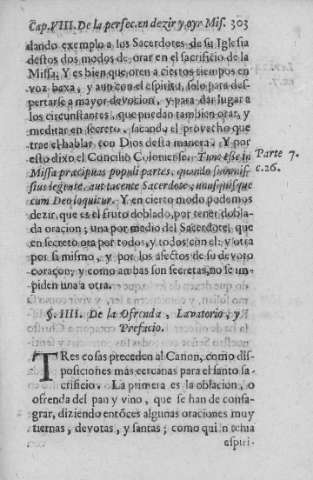 Cap. VIII. De la perfec. en dezir y oyr Mis. 303
dando exemplo a los Sacerdotes de su Iglesia
destos dos modos de orar en el sacrificio de la
Missa. Y es bien que oren a ciertos tiempos en
voz baxa, y aun con el espiritu, solo para des-
pertarse a mayor devocion, y para dar lugar a
los circunstantes, que puedan tambien orar, y
meditar en secreto, sacando el provecho que
trae el hablar con Dios desta manera. Y por
esto dixo el Concilio Coloniense. Tunc esse in
Missa præcipuas populi partes, quando
sius legente, aut tacente Sacerdote, unusquisque
cum Deo loquitur. Y en cierto modo podemos
dezir, que es el fruto doblado, por tener dobla-
da oracion; una por medio del Sacerdote, que
en secreto ora por todos, y todos con el: y otra
por sì mismo, y por los afectos de su devoto
coraçon; y como ambas son secretas, no se im-
piden una a otra.
Parte 7.
c. 26.
§. IIII. De la Ofrenda, Lavatorio, y
Prefacio.
TRes cosas preceden al Canon, como dis-
posiciones mas cercanas para el santo sa-
crificio. La primera es la oblacion, o
ofrenda del pan y vino, que se han de consa-
grar, diziendo entõces algunas oraciones muy
tiernas, devotas, y santas; como quien tenia
espiri-